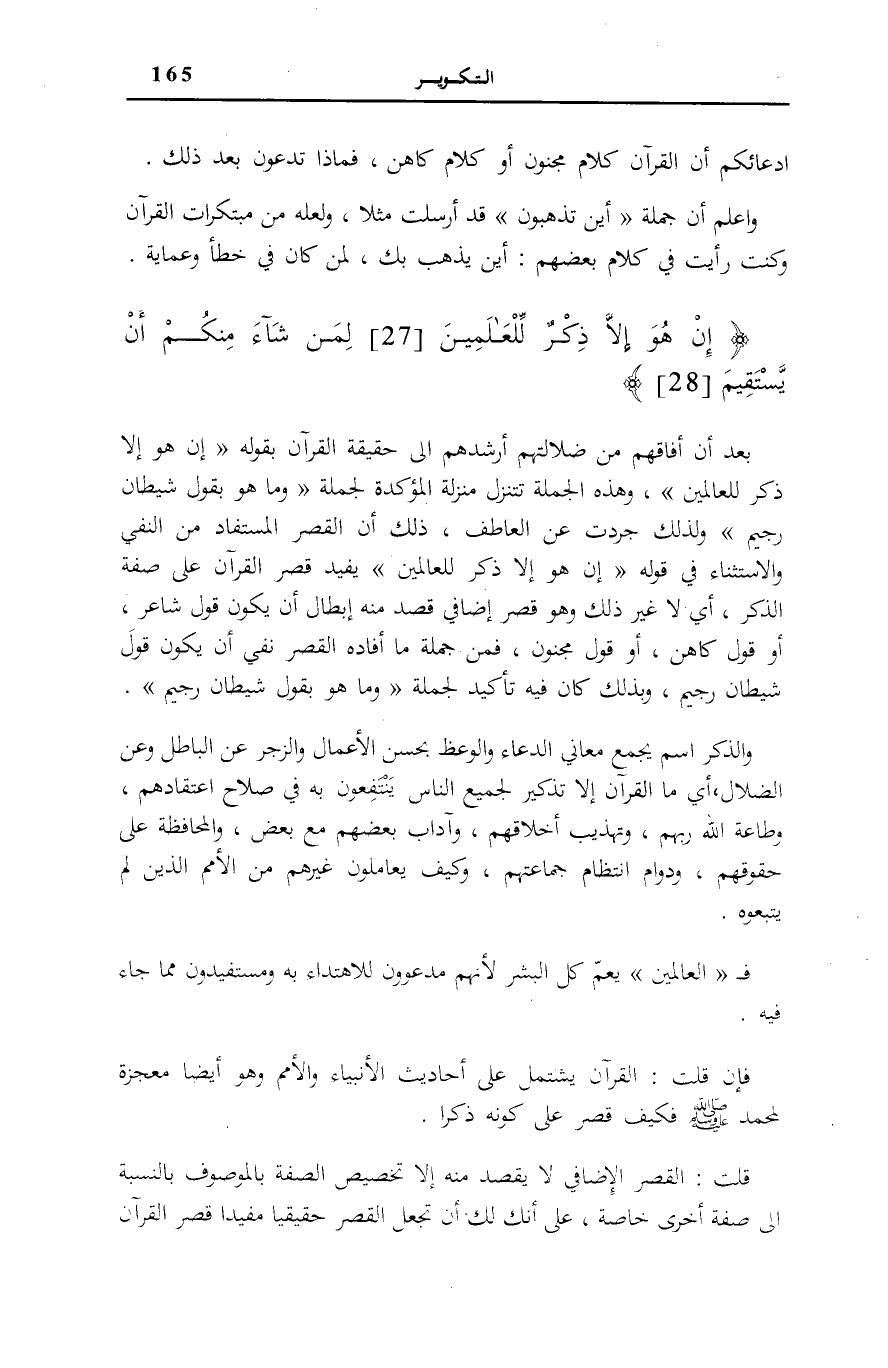 التكوير 165
ادعائكم أن القرآن كلام مجنون أو كلام كاهن ، فماذا تدعون بعد ذلك .
واعلم أن جملة « أين تذهبون » قد أرسلت مثلا ، ولعله من مبتكرات القرآن
وكنت رأيت في كلام بعضهم : أين يذهب بك ، لمن كان في خطأ وعماية .
﴿ إِنْ هُوَ إِلاَّ ذِكْرٌ لِّلْعَـٰلَمِينَ [27] لِمَن شَآءَ مِنكُمْ أَنْ
يَّسْتَقِيمَ [28] ﴾
بعد أن أفاقهم من ضلالتهم أرشدهم الى حقيقة القرآن بقوله « إن هو إلا
ذكر للعالمين » ، وهذه الجملة تتنزل منزلة المؤكدة لجملة « وما هو بقول شيطان
رجيم » ولذلك جردت عن العاطف ، ذلك أن القصر المستفاد من النفي
والاستثناء في قوله « إن هو إلا ذكر للعالمين » يفيد قصر القرآن على صفة
الذكر ، أي لا غير ذلك وهو قصر إضافي قصد منه إبطال أن يكون قول شاعر ،
أو قول كاهن ، أو قول مجنون ، فمن جملة ما أفاده القصر نفي أن يكون قولَ
شيطان رجيم ، وبذلك كان فيه تأكيد لجملة « وما هو بقول شيطان رجيم » .
والذكر اسم يجمع معاني الدعاء والوعظ بحسن الأعمال والزجر عن الباطل وعن
الضلال،أي ما القرآن إلا تذكير لجميع الناس يَنْتَفِعون به في صلاح اعتقادهم ،
وطاعة الله ربهم ، وتهذيب أخلاقهم ، وآداب بعضهم مع بعض ، والمحافظة على
حقوقهم ، ودوام انتظام جماعتهم ، وكيف يعاملون غيرهم من الأمم الذين لم
يتبعوه .
فـ « العالمين » يعمّ كل البشر لأنهم مدعوون للاهتداء به ومستفيدون مما جاء
فيه .
فإن قلت : القرآن يشتمل على أحاديث الأنبياء والأمم وهو أيضا معجزة
لمحمد ﷺ فكيف قصر على كونه ذكرا .
قلت : القصر الإضافي لا يقصد منه إلا تخصيص الصفة بالموصوف بالنسبة
الى صفة أخرى خاصة ، على أنك لك أن تجعل القصر حقيقيا مفيدا قصر القرآن